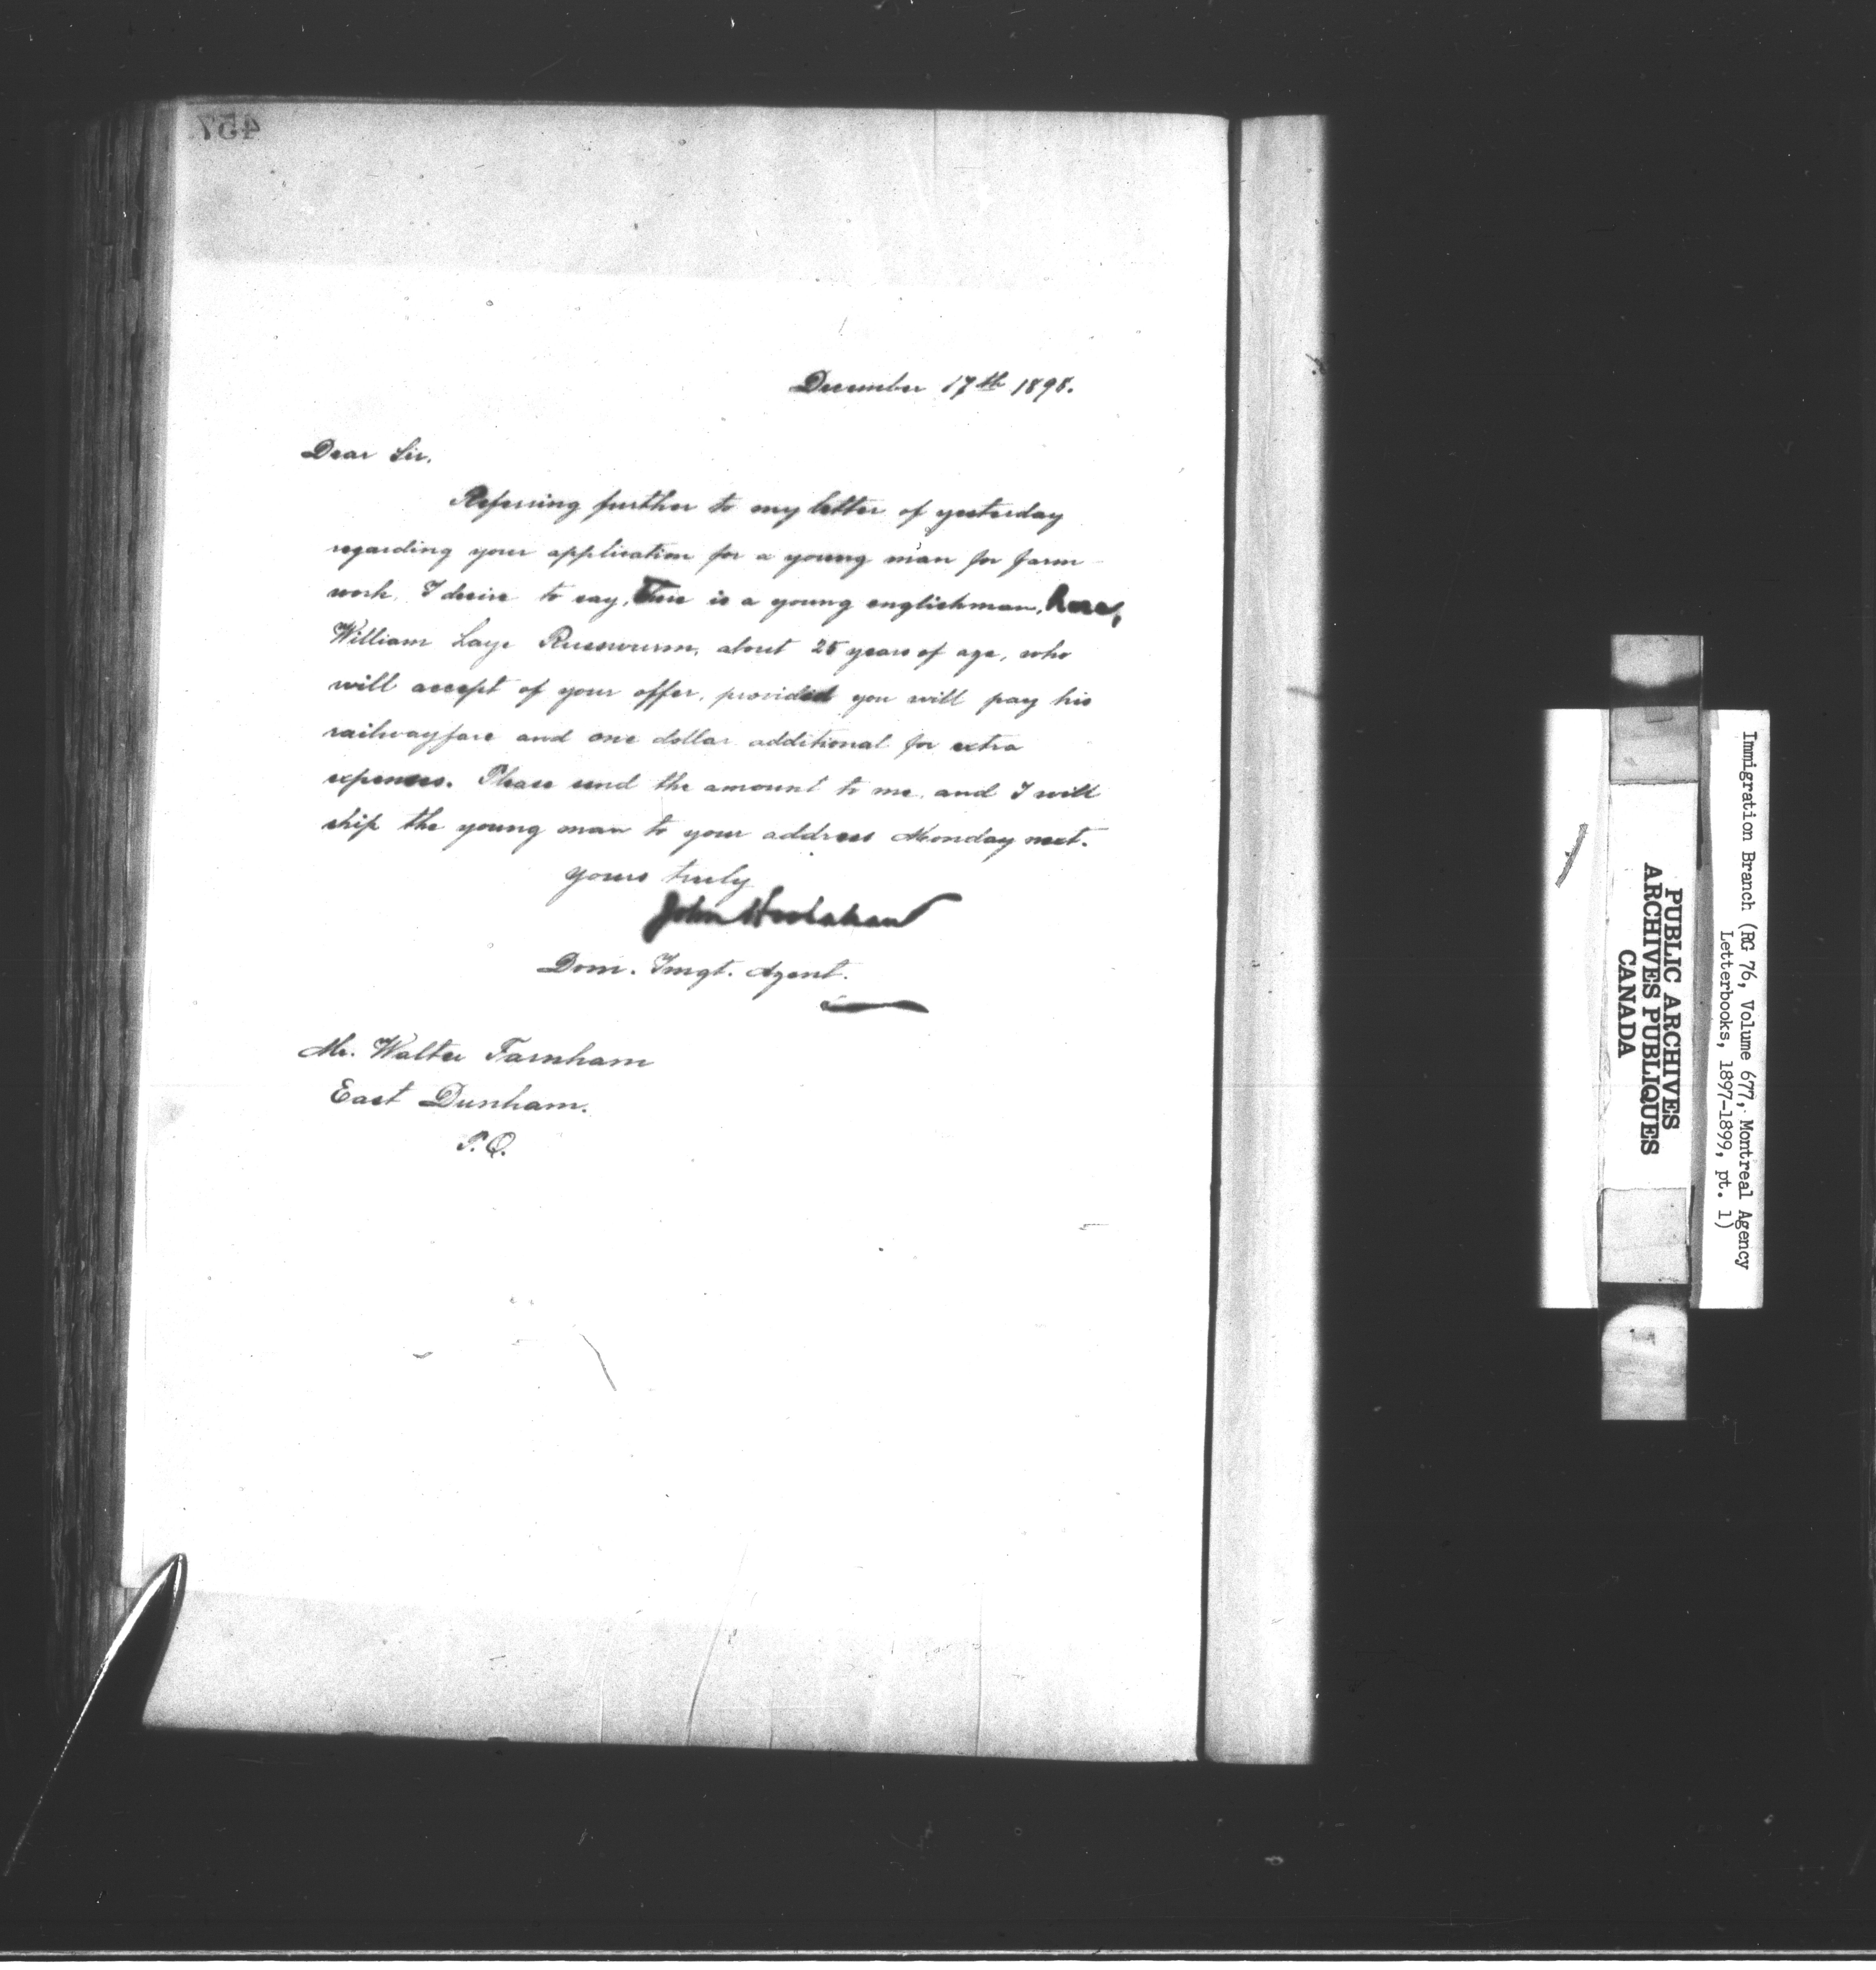 457
December 17th 1898.
Dear Sir,
Referring further to my letter of yesterday
regarding your application for a young man for farm
work, I desire to say, there is a young englishman, here,
William Laye Russwurm, about 25 years of age, who
will accept of your offer, provided you will pay his
railwayfare and one dollar additional for extra
expenses. Please send the amount to me, and I will
ship the young man to your address Monday next.
Yours truly
John Hoolahan
Dom. Imgt. Agent.
Mr. Walter Farnham
East Dunham.
P.Q.
Immigration Branch (RG 76, Volume 677, Montreal Agency
Letterbooks, 1897-1899, pt. 1)
PUBLIC ARCHIVES
ARCHIVES PUBLIQUES
CANADA